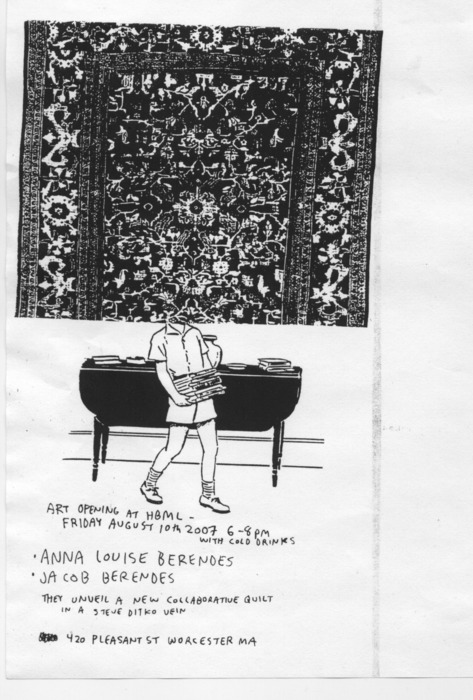 ART OPENING AT HBML -
FRIDAY AUGUST 10th 2007 6-8PM
WITH COLD DRINKS
· ANNA LOUISE BERENDES
· JACOB BERENDES
THEY UNVEIL A NEW COLLABORATIVE QUILT
IN A STEVE DITKO VEIN
420 PLEASANT ST WORCESTER MA